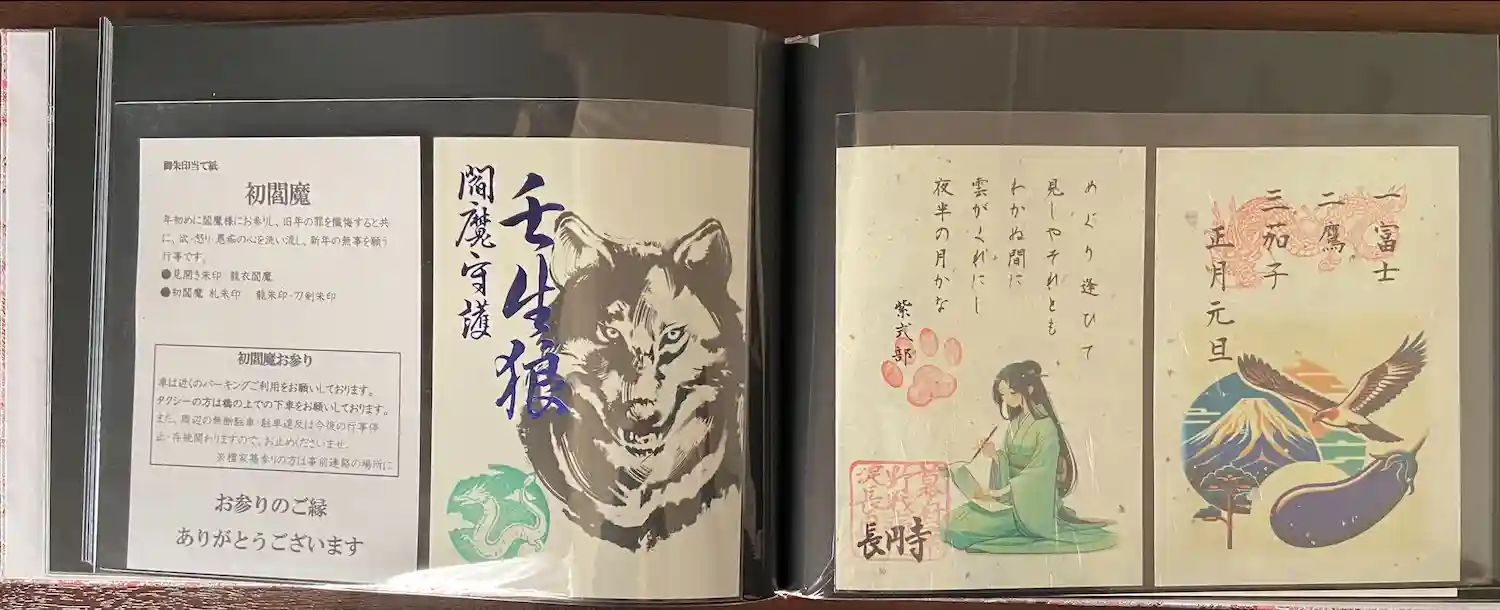 御朱印当て紙
初閻魔
年初めに閻魔様にお参りし、旧年の罪を懺悔すると共
に、欲・怒り・愚痴の心を洗い流し、新年の無事を願う
行事です。
●見開き朱印 龍衣閻魔
●初閻魔 札朱印 龍朱印・刀剣朱印
初閻魔お参り
車は近くのパーキングご利用をお願いしております。
タクシーの方は橋の上での下車をお願いしております。
また、周辺の無断駐車・駐車違反は今後の行事停
止・存続関わりますので、お止めくださいませ。
※檀家墓参りの方は事前連絡の場所に
お参りのご縁
ありがとうございます
壬生狼
閻魔守護
めぐり逢ひて
見しやそれとも
わかぬ間に
雲がくれにし
夜半の月かな
紫式部
長円寺
一富士
二鷹
三茄子
正月元旦